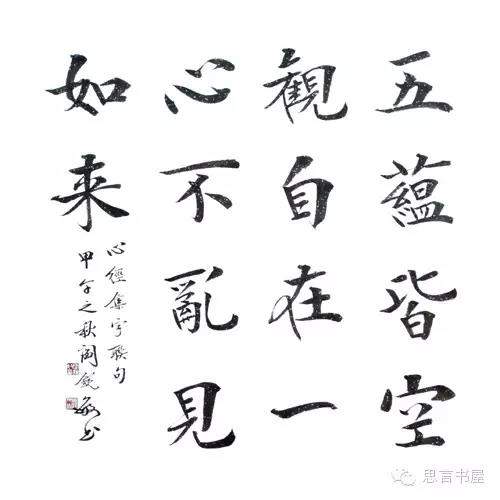 五蘊皆空
觀自在一
心不亂見
如来
心經集字聯句
甲午之秋閻銳敏书
思言书屋